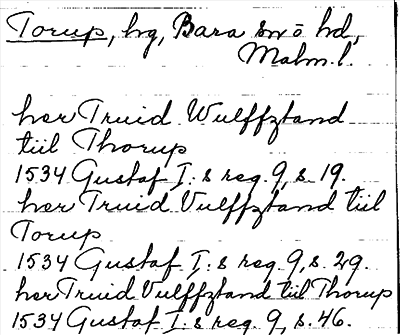 Torup, hg, Bara sn o hd,
Malm.l.
her Truid Wulffztand
tiil Thorup
1534 Gustaf I:s reg. 9, s. 19.
her Truid Vulffztand tiil
Torup
1534 Gustaf I:s reg. 9, s. 29.
her Truid Vulffztand til Thorup
1534 Gustaf I:s reg. 9, s. 46.